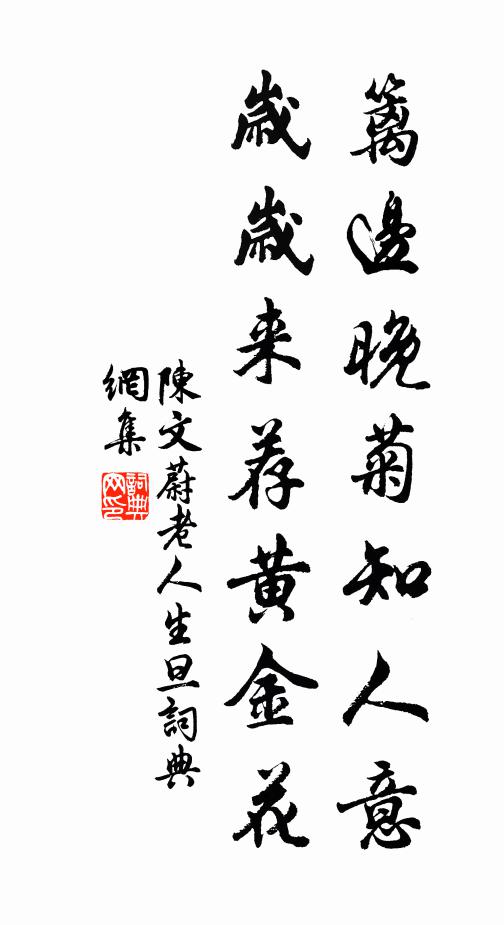 籬邊晚菊知人意
歲歲来荐黄金花
陳文蔚老人生旦詞典
網集
詞典
网印